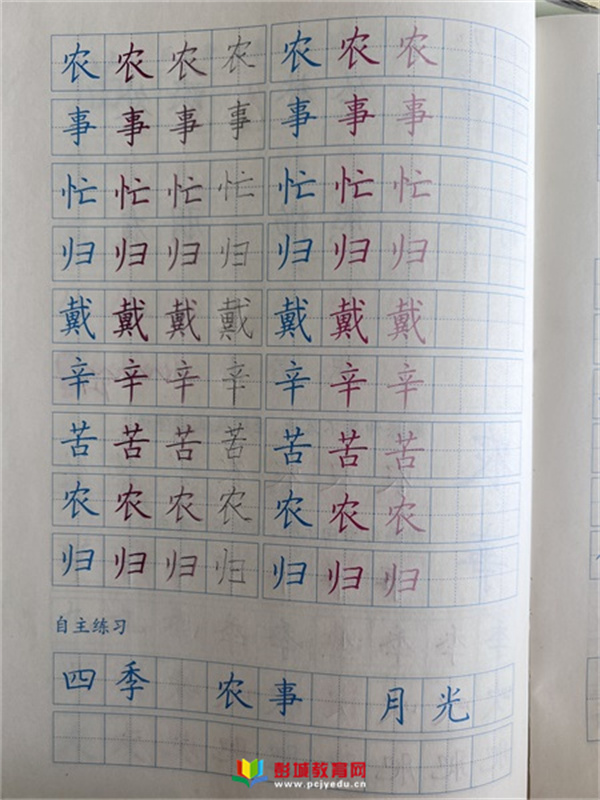 农农农农农农农
事事事事事事事
忙忙忙忙忙忙忙
归归归归归归归
戴戴戴戴戴戴戴
辛辛辛辛辛辛辛
苦苦苦苦苦苦苦
农农农农农农农
归归归归归归归
自主练习
四季 农事 月光
彭城教育网
www.pcjyedu.cn